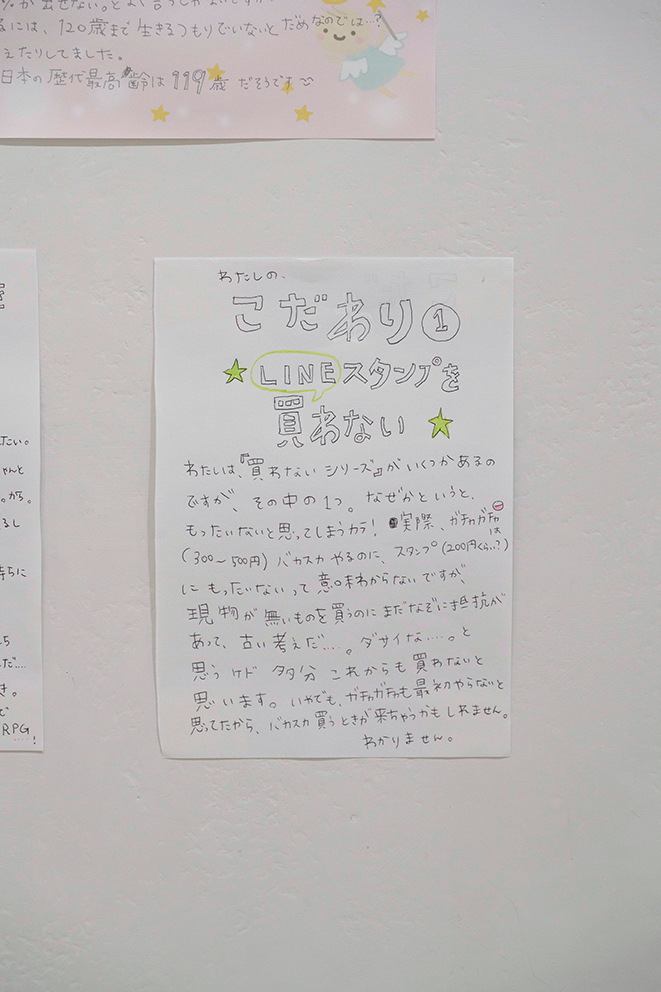 %が出せない。とよく言うじゃないですか
るには、120歳まで生きるつもりでいないとだめなのでは…?
えたりしてました。
日本の歴代最高齢は119歳だそうです
わたしの、
こだわり①
★LINEスタンプを
買わない★
わたしは、『買わないシリーズ』がいくつかあるの
ですが、その中の1つ。なぜかというと、
もったいないと思ってしまうカラ! 実際、ガチャガチャは
(300〜500円) バカスカやるのに、スタンプ(200円くらい?)
にもったいないって意味わからないですが、
現物が無いものを買うのにまだなぞに抵抗が
あって、古い考えだ….。ダサイな….。と
思うケド タタ分 これからも買わないと
思います。いやでも、ガチャガチャも最初やらないと
思ってたから、バカスカ買うときが来ちゃうかもしれません。
わかりません。
たい。
ゃんと
。から。
るし
待ちに
ち
だ…
き。
で
RPG!